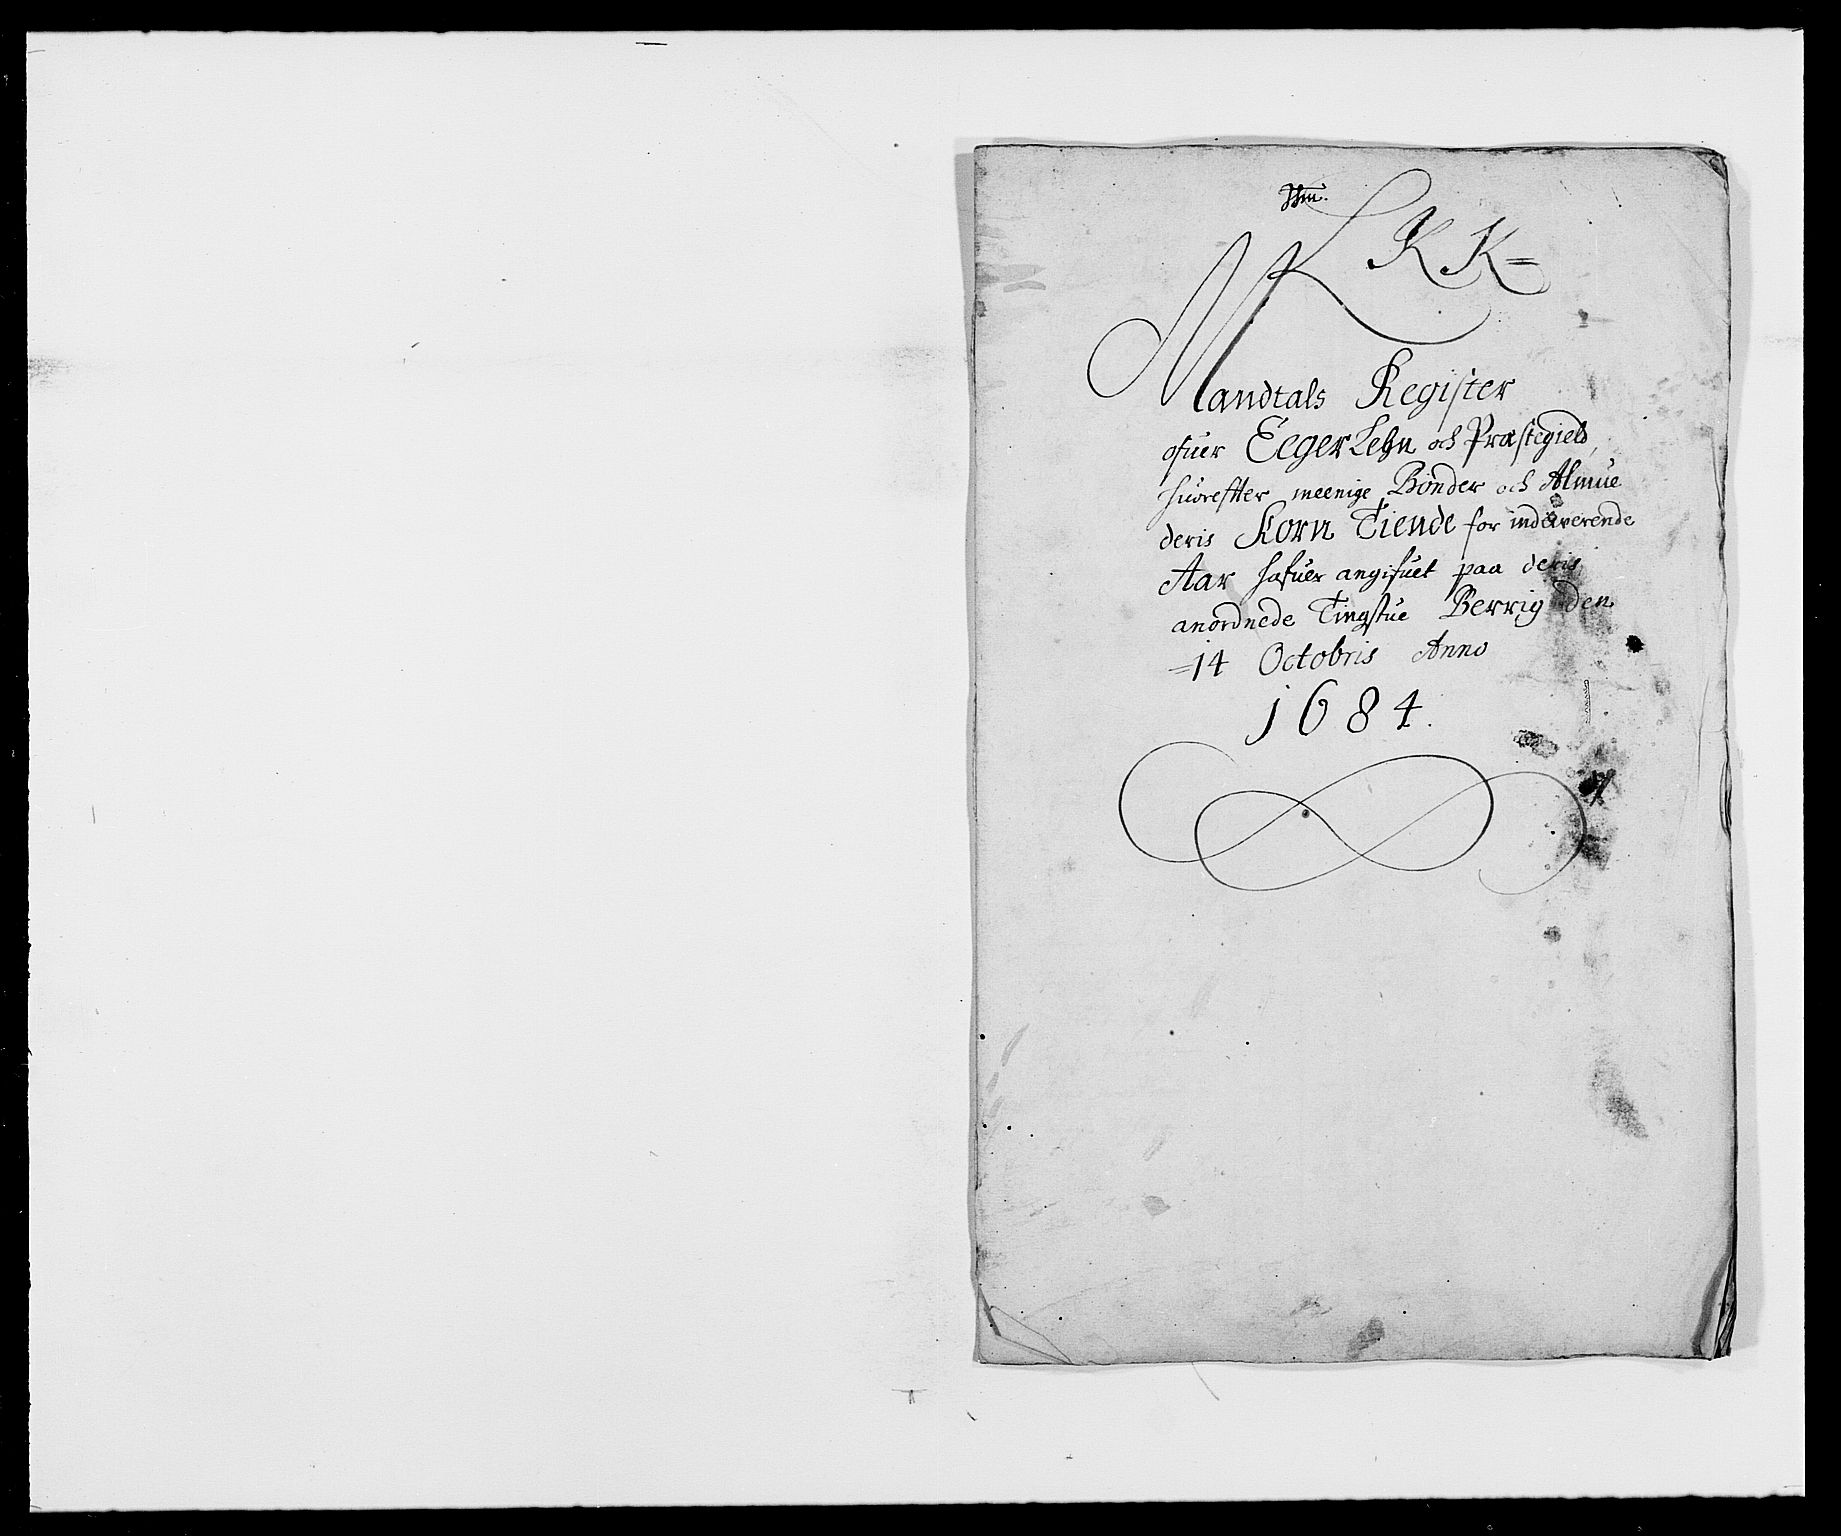 K K =
Mandtals Register
ofuer Eeger Lehn och Præstegield,
huoreffter meenige Bønder och Almue
deris Korn Tiende for indeverende
Aar hafuer angifuet paa deris
anordnede Tingstue Berrig den
= 14 Octobris Anno
1684.